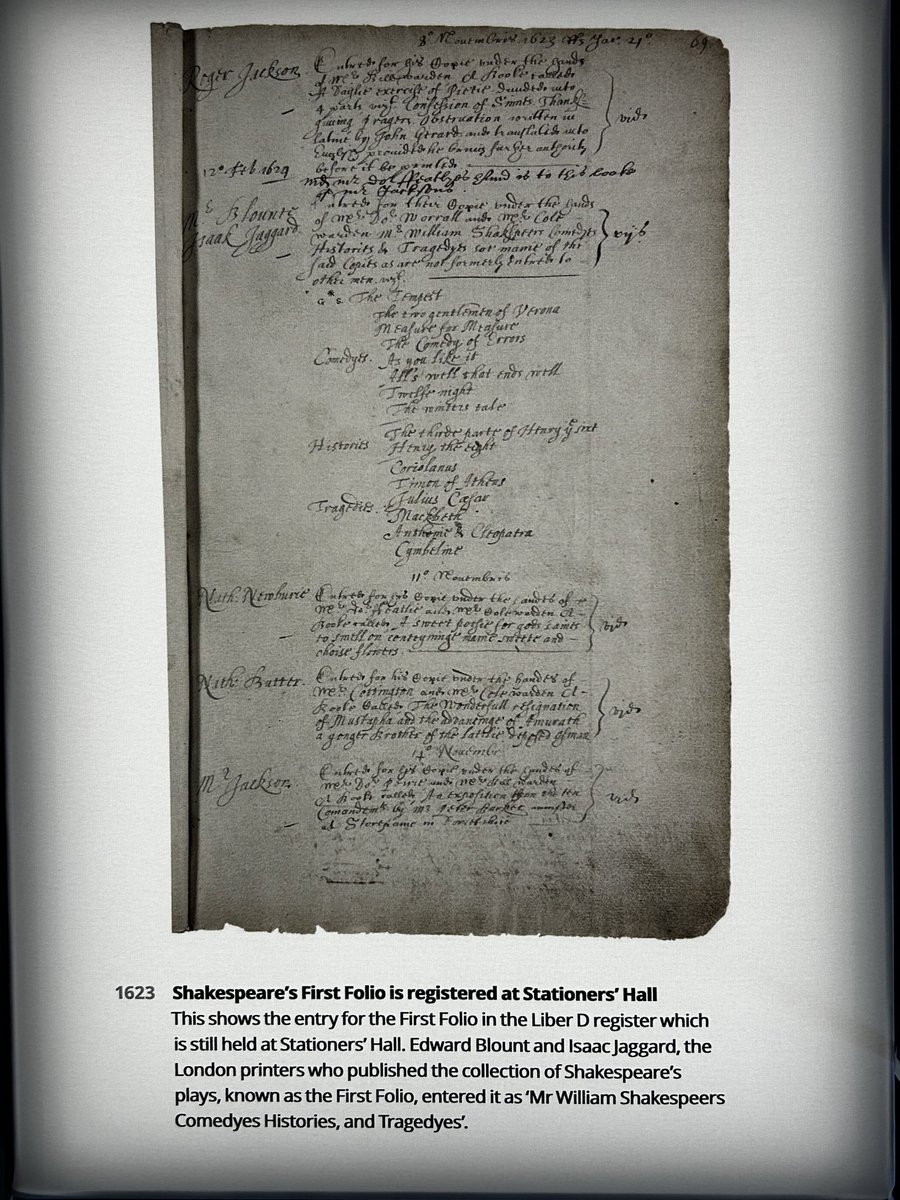 8° Novembris 1623 Jar. 21° 69
Roger Jackson. Entred for his Copie vnder the hands
of warden A Booke called
A exercise of Pietie deuided into
4 parts vizt. Confession of Sinns. Thankf-
giuing prayers obseruation written in
latine by John Gerard and translated into
English prouided he bring further authority
before it be printed.
vjd
12° Feb. 1629
is to this booke
of mr Jacksons.
Mr Blounte
Isaak Jaggard. Entred for their Copie vnder the hands
of Mr Dor Worrall and Mr Cole
warden Mr William Shakspeers Comedyes
Histories & Tragedyes soe manie of the
said Copies as are not formerly entred to
other men. vizt.
vijs
The Tempest
The two gentlemen of Verona
Measure for Measure
The Comedy of Errors
Comedyes. As you like it
All's well that ends well
Twelfe night
The winters tale
The thirde parte of Henry ye sixt
Histories Henry the eight
Coriolanus
Timon of Athens
Julius Cæsar
Tragedies.
Mackbeth
Anthonie & Cleopatra
Cymbeline
11° Novembris
Nath: Newburie Entred for his Copie vnder the handes of
and warden A
Booke called A sweet posie for gods saints
to smell on conteyninge manie sweete and
choise flowers.
vjd
Nath: Butter. Entred for his Copie vnder the handes of
Mr Cottington and Mr Cole warden A
Booke called The Wonderfull resignation
of Mustapha and the advancinge of Amurath
a yonger Brother of the lattlie deposed Osman
vjd
14° Novembr
Mr Jackson. Entred for his Copie vnder the handes of
and warden
A Booke called An exposition vpon the ten
Comandemts by Mr Peter Barker
at Storepaine in Dorsetshire
vjd
1623 Shakespeare’s First Folio is registered at Stationers’ Hall
This shows the entry for the First Folio in the Liber D register which
is still held at Stationers’ Hall. Edward Blount and Isaac Jaggard, the
London printers who published the collection of Shakespeare’s
plays, known as the First Folio, entered it as ‘Mr William Shakespeers
Comedyes Histories, and Tragedyes’.